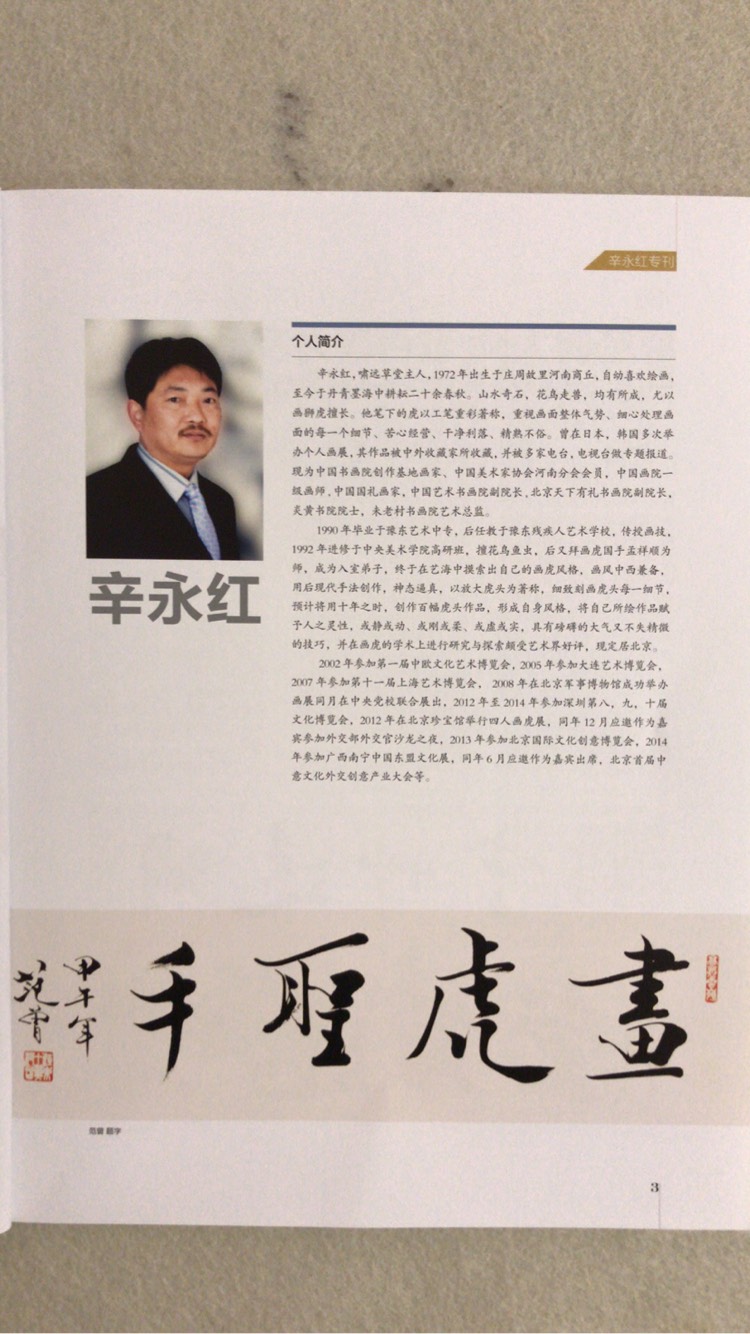 辛永红专刊
个人简介
辛永红，啸远草堂主人，1972年出生于庄周故里河南商丘，自动喜欢绘画，
至今于丹青墨海中耕耘二十余春秋。山水奇石，花鸟走兽，均有所成，尤以
画狮虎擅长。他笔下的虎以工笔重彩著称，重视画面整体气势、细心处理画
面的每一个细节、苦心经营、干净利落、精熟不俗。曾在日本，韩国多次举
办个人画展，其作品被中外收藏家所收藏，并被多家电台，电视台做专题报道。
现为中国书画院创作基地画家、中国美术家协会河南分会会员，中国画院一
级画师、中国国礼画家，中国艺术书画院副院长、北京天下有礼书画院副院长，
炎黄书院院士，朱老村书画院艺术总监。
1990年毕业于豫东艺术中专，后任教于豫东残疾人艺术学校，传授画技，
1992年进修于中央美术学院高研班，擅花鸟鱼虫，后又拜画虎国手孟祥顺为
师，成为入室弟子，终于在艺海中摸索出自己的画虎风格，画风中西兼备，
用后现代手法创作，神态逼真，以放大虎头为著称，细致刻画虎头每一细节，
预计将用十年之时，创作百幅虎头作品，形成自身风格，将自己所绘作品赋
予人之灵性，或静或动、或刚或柔、或虚或实，具有磅礴的大气又不失精微
的技巧，并在画虎的学术上进行研究与探索颇受艺术界好评，现定居北京。
2002年参加第一届中欧文化艺术博览会，2005年参加大连艺术博览会，
2007年参加第十一届上海艺术博览会， 2008年在北京军事博物馆成功举办
画展同月在中央党校联合展出，2012年至2014年参加深圳第八，九，十届
文化博览会，2012年在北京珍宝馆举行四人画虎展，同年12月应邀作为嘉
宾参加外交部外交官沙龙之夜，2013年参加北京国际文化创意博览会，2014
年参加广西南宁中国东盟文化展，同年6月应邀作为嘉宾出席，北京首届中
意文化外交创意产业大会等。
辛永红
畫虎聖手
甲午年
范曾
范曾 题字
3